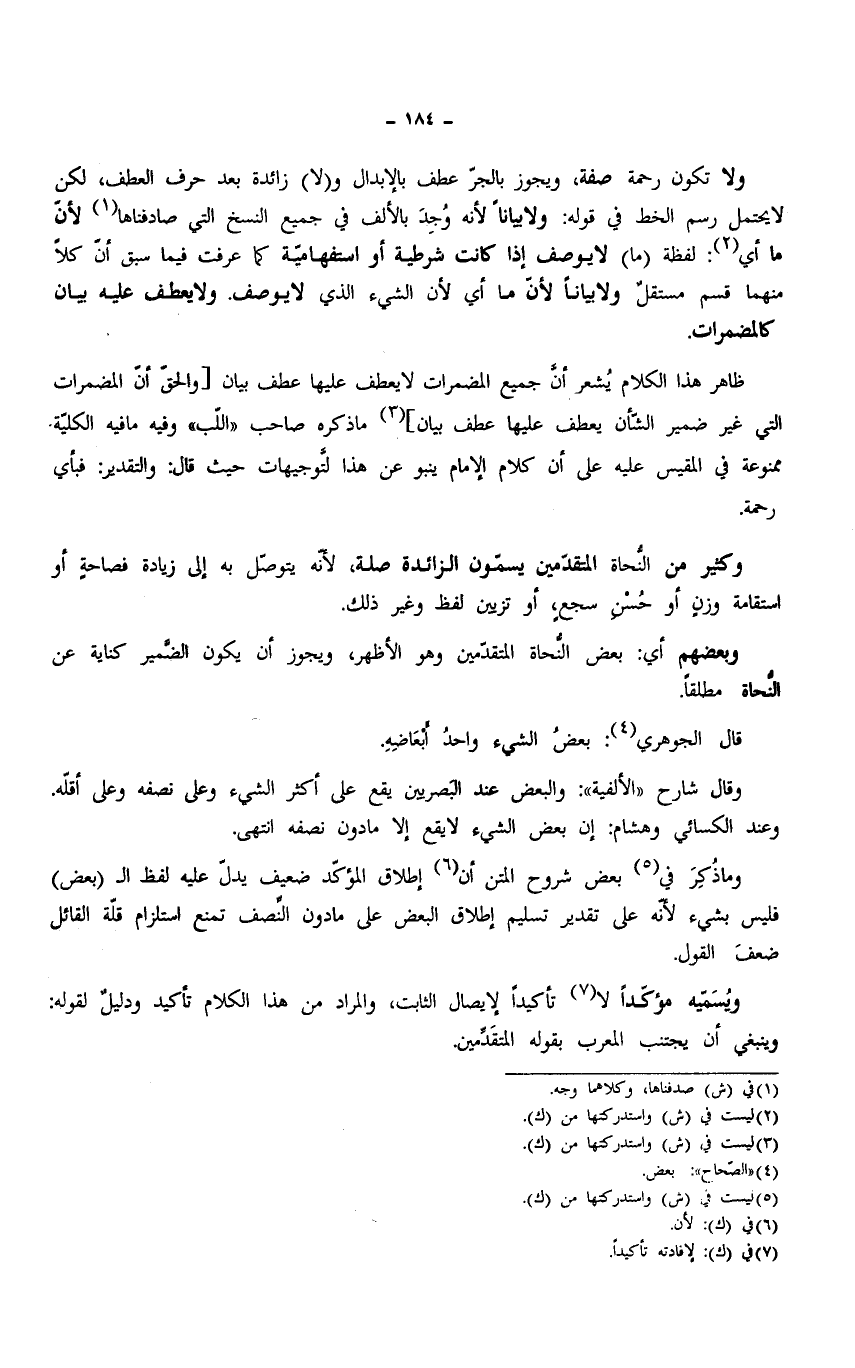 - ١٨٤ -
ولا تكون رحمة صفة، ويجوز بالجرّ عطف بالإبدال و(لا) زائدة بعد حرف العطف، لكن
لايحتمل رسم الخط في قوله: ولابياناً لأنه وُجِدَ بالألف في جميع النسخ التي صادفناها(١) لأنّ
ما أي(٢): لفظة (ما) لايوصف إذا كانت شرطية أو استفهاميّة كما عرفت فيما سبق أنّ كلاً
منهما قسم مستقلٌ ولابيانـاً لأنّ مـا أي لأن الشيء الذي لايوصف. ولايعطف عليه بيان
كالمضمرات.
ظاهر هذا الكلام يُشعر أنَّ جميع المضمرات لايعطف عليها عطف بيان [والحقّ أنّ المضمرات
التي غير ضمير الشّأن يعطف عليها عطف بيان](٣) ماذكره صاحب «اللّب» وفيه مافيه الكليّة
ممنوعة في المقيس عليه على أن كلام الإمام ينبو عن هذا لتَّوجيهات حيث قال: والتقدير: فبأي
رحمة.
وكثير من النُّحاة المتقدّمين يسمّون الزائدة صلـة، لأنّه يتوصّل به إلى زيادة فصاحةٍ أو
استقامة وزنٍ أو حُسْنِ سجعٍ، أو تزيين لفظ وغير ذلك.
وبعضهم أي: بعض النُّحاة المتقدّمين وهو الأظهر، ويجوز أن يكون الضَّمير كناية عن
النُّحاة مطلقاً.
قال الجوهري(٤): بعضُ الشيء واحدُ أَبْعَاضِهِ.
وقال شارح «الألفية»: والبعض عند البَصريين يقع على أكثر الشيء وعلى نصفه وعلى أقلّه.
وعند الكسائي وهشام: إن بعض الشيء لايقع إلا مادون نصفه انتهى.
وماذُكِرَ في(٥) بعض شروح المتن أن(٦) إطلاق المؤكّد ضعيف يدلّ عليه لفظ الـ (بعض)
فليس بشيء لأنّه على تقدير تسليم إطلاق البعض على مادون النّصف تمنع استلزام قلّة القائل
ضعفَ القول.
ويُسَمّيه مؤكّـداً لا(٧) تأكيداً لإيصال الثابت، والمراد من هذا الكلام تأكيد ودليلٌ لقوله:
وينبغي أن يجتنب المعرب بقوله المتقدِّمين.
(١)في (ش) صدفناها، وكلاهما وجه.
(٢)ليست في (ش) واستدركتها من (ك).
(٣)ليست في (ش) واستدركتها من (ك).
(٤)«الصّحاح»: بعض.
(٥)ليست في (ش) واستدركتها من (ك).
(٦)في (ك): لأن.
(٧)في (ك): لإفادته تأكيداً.